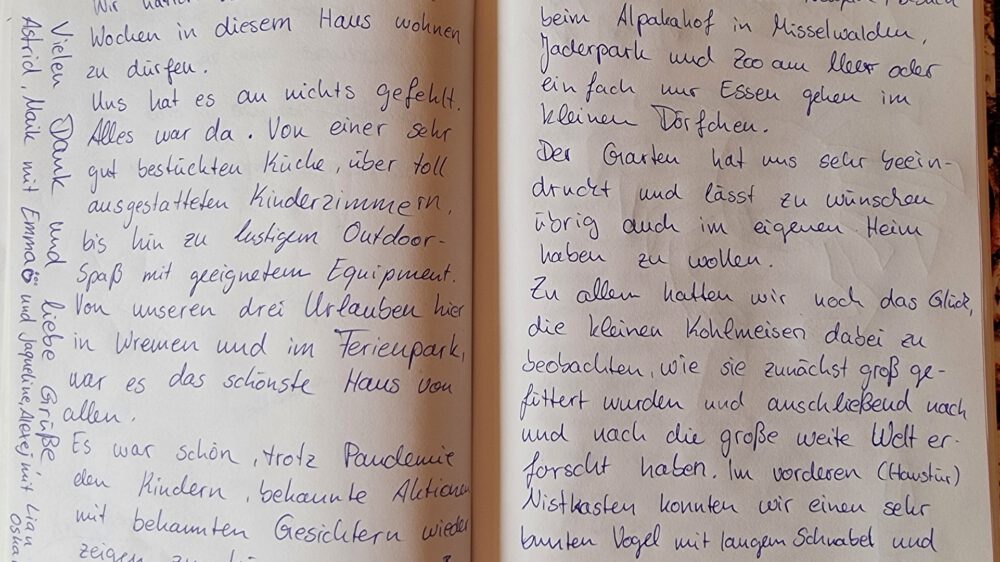 Wochen in diesem Haus wohnen
zu dürfen.
Uns hat es an nichts gefehlt.
Alles war da. Von einer sehr
gut bestückten Küche, über toll
ausgestatteten Kinderzimmern,
bis hin zu lustigem Outdoor-
Spaß mit geeignetem Equipment.
Von unseren drei Urlauben hier
in Wremen und im Ferienpark,
war es das schönste Haus von
allen.
Es war schön, trotz Pandemie
den Kindern, bekannte Aktionen
mit bekannten Gesichtern wieder
zeigen zu
Vielen Dank und liebe Grüße,
Astrid, Maik mit Emma und Jaqueline, Alexej mit Lian
beim Alpakahof in Misselwalden,
Jaderpark und Zoo am Meer oder
einfach nur Essen gehen im
kleinen Dörfchen.
Der Garten hat uns sehr beein-
druckt und lässt zu wünschen
übrig auch im eigenen Heim
haben zu wollen.
Zu allem hatten wir noch das Glück,
die kleinen Kohlmeisen dabei zu
beobachten, wie sie zunächst groß ge-
füttert wurden und anschließend nach
und nach die große weite Welt er-
forscht haben. Im vorderen (Haustür)
Nistkasten konnten wir einen sehr
bunten Vogel mit langem Schnabel und